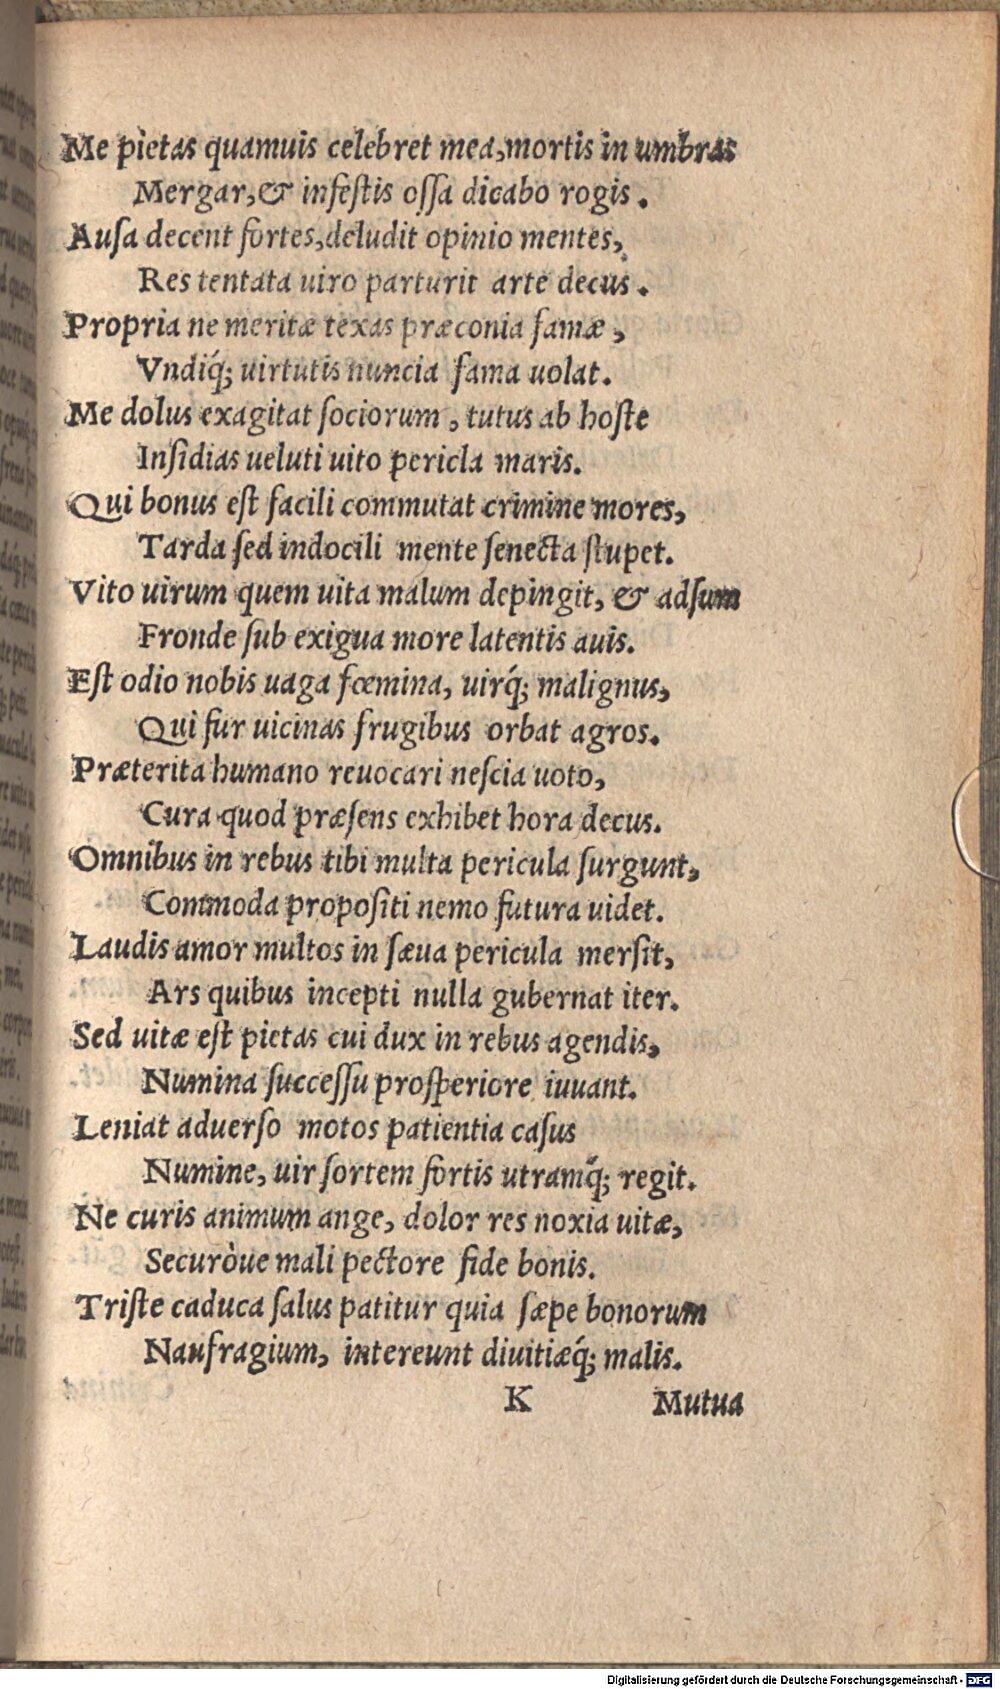 Me pietas quamuis celebret mea, mortis in umbras
Mergar, & infestis ossa dicabo rogis.
Ausa decent fortes, deludit opinio mentes,
Res tentata uiro parturit arte decus.
Propria ne meritæ texas præconia famæ,
Vndiq́; uirtutis nuncia fama uolat.
Me dolus exagitat sociorum, tutus ab hoste
Insidias ueluti uito pericla maris.
Qui bonus est facili commutat crimine mores,
Tarda sed indocili mente senecta stupet.
Vito uirum quem uita malum depingit, & adsum
Fronde sub exigua more latentis auis.
Est odio nobis uaga fœmina, uirq́; malignus,
Qui fur uicinas frugibus orbat agros.
Præterita humano reuocari nescia uoto,
Cura quod præsens exhibet hora decus.
Omnibus in rebus tibi multa pericula surgunt,
Commoda propositi nemo futura uidet.
Laudis amor multos in sæua pericula mersit,
Ars quibus incepti nulla gubernat iter.
Sed uitæ est pietas cui dux in rebus agendis,
Numina successu prosperiore iuuant.
Leniat aduerso motos patientia casus
Numine, uir sortem fortis utramq́; regit.
Ne curis animum ange, dolor res noxia uitæ,
Securòue mali pectore fide bonis.
Triste caduca salus patitur quia sæpe bonorum
Naufragium, intereunt diuitiæq́; malis.
K Mutua
Digitalisierung gefördert durch die Deutsche Forschungsgemeinschaft - DFG